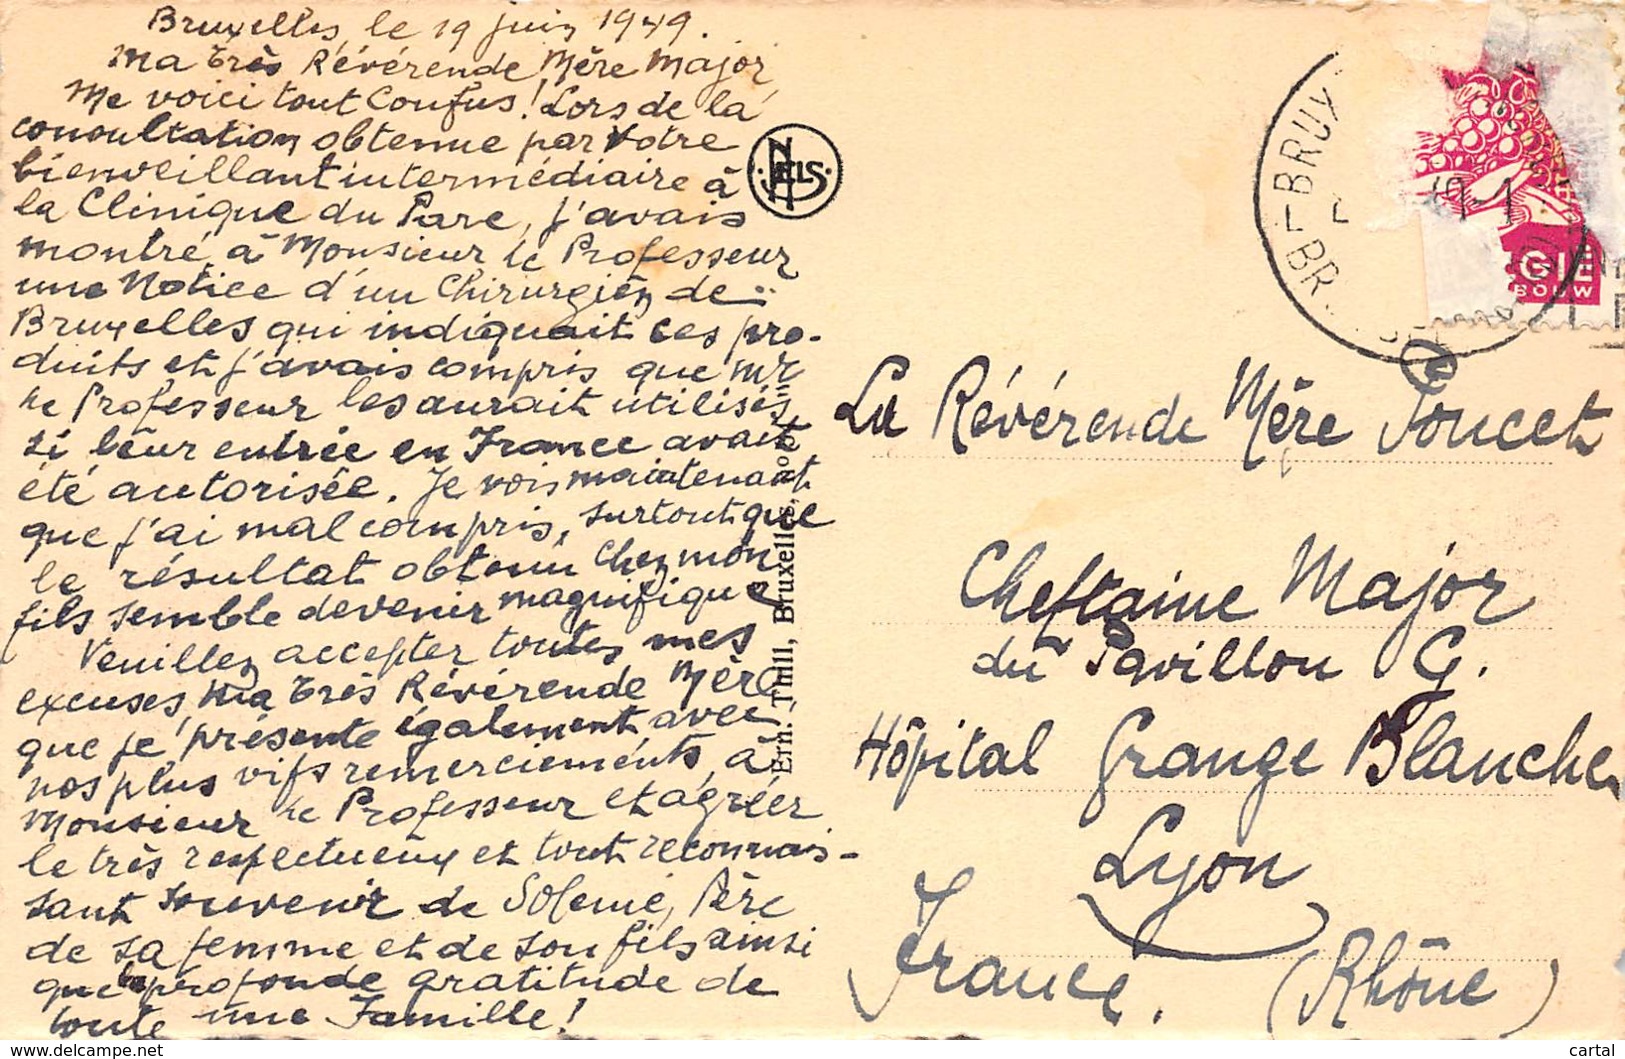 Bruxelles, le 19 juin 1949.
Ma très Révérende Mère Major,
Me voici tout confus! Lors de la
consultation obtenue par votre
bienveillant intermédiaire à
la Clinique du Parc, j'avais
montré à Monsieur le Professeur
une Notice d'un Chirurgien de
Bruxelles qui indiquait ces pro-
duits et j'avais compris que Mr
le Professeur les aurait utilisés
si leur entrée en France avait
été autorisée. Je vois maintenant
que j'ai mal compris, surtout que
le résultat obtenu chez mon
fils semble devenir magnifique
Veuillez accepter toutes mes
excuses ma très Révérende Mère
que je présente également avec
nos plus vifs remerciements, à
Monsieur le Professeur et agréer
le très respectueux et tout reconnais-
sant souvenir de Père
de sa femme et de son fils ainsi
que la profonde gratitude de
toute une Famille!
NELS
Ern. Thill, Bruxelles,
BRUX
BR
GIE
BOUW
La Révérende Mère Poncet
Cheftaine Major
du Pavillon G.
Hôpital Grange Blanche
Lyon
France. (Rhône)
cartal